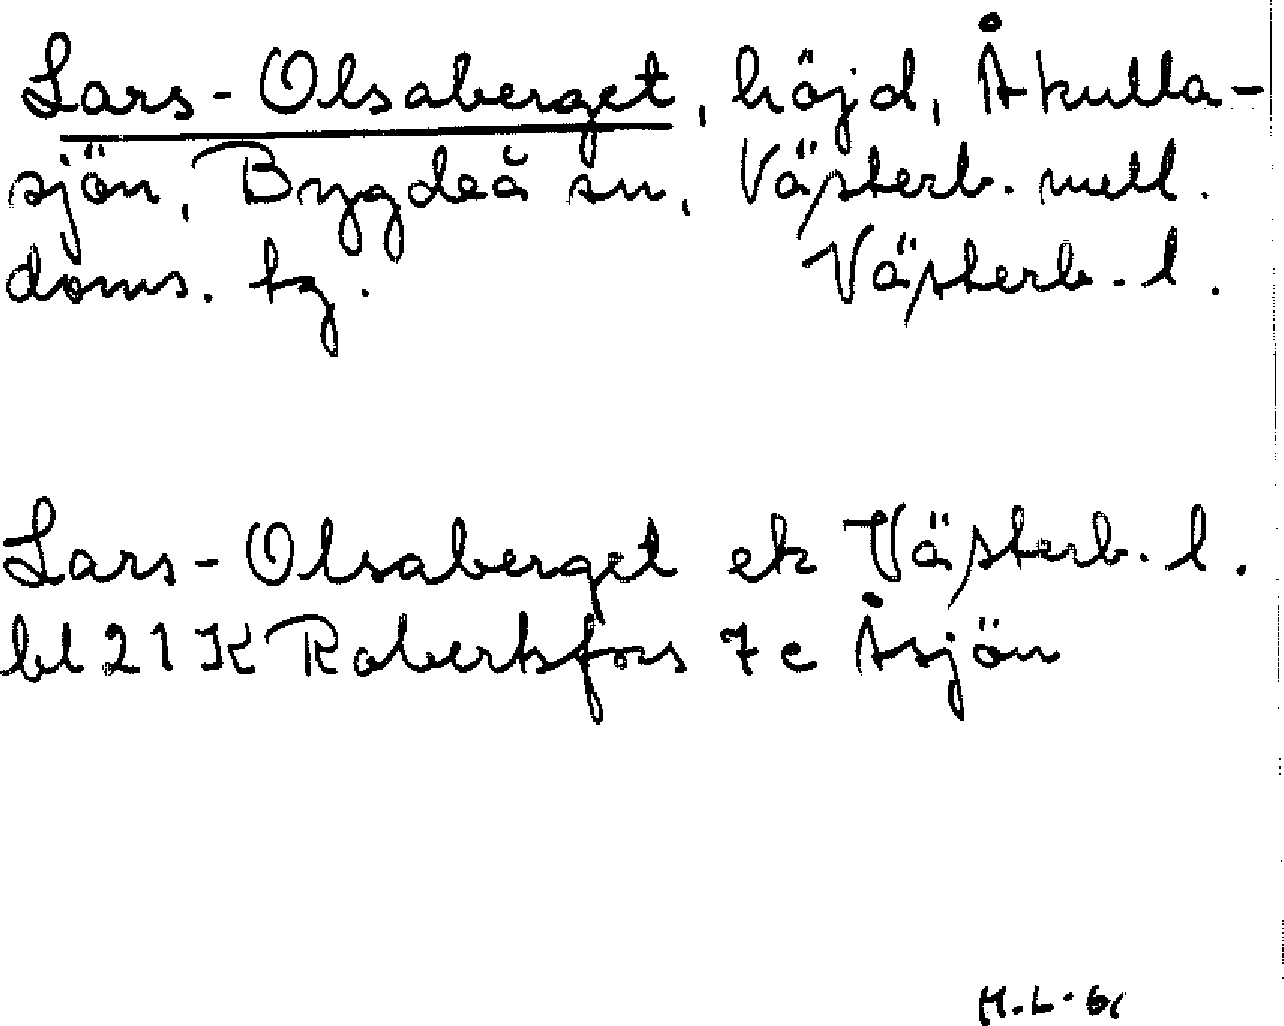 Lars-Olsaberget, höjd, Åkulla-
sjön, Bygdeå sn, Västerb. mell.
doms. tg. Västerb. l.
Lars-Olsaberget ek Västerb. l.
bl 21 K Robertsfors 7c Åsjön
H.L.